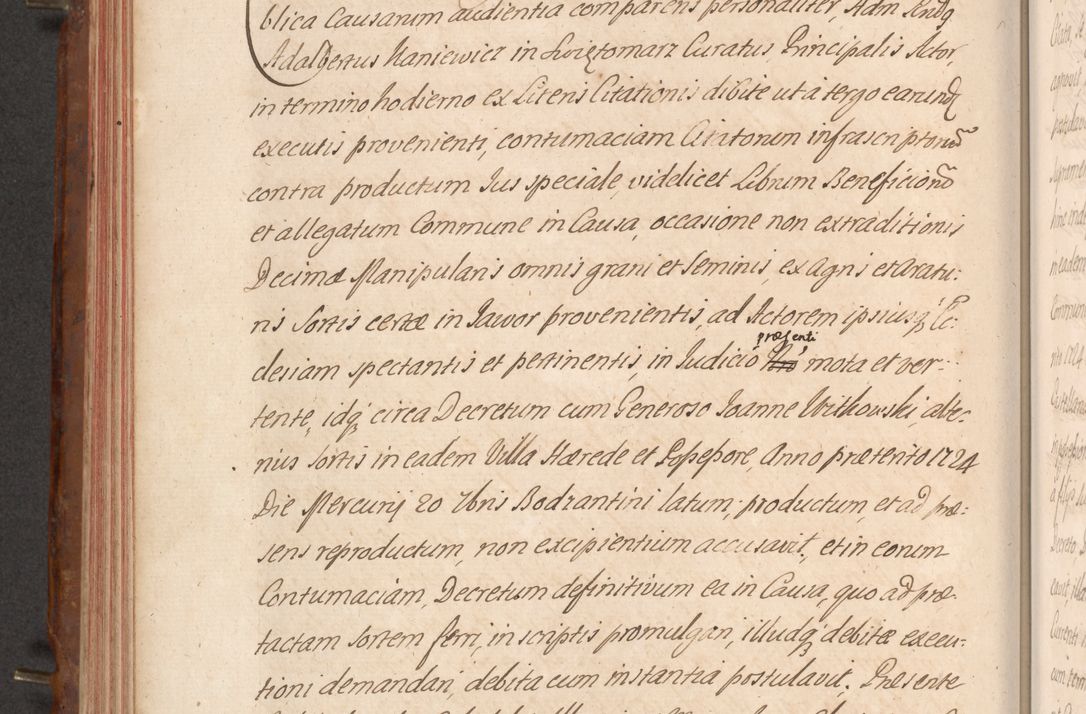 blica Causarum audientia comparens personaliter, Adm Rndq
Adalbertus Haniewicz in Swiętomarz Curatus, Principalis Actor,
in termino hodierno ex Literis Citationis dibite ut à tergo earundq
executis provenienti, contumaciam Citatorum infrascriptorũ
contra productum Ius speciale, videlicet Librum Beneficiorũ
et allegatum Commune in Causa, occasione non extraditionis
Decimæ Manipularis omnis grani et seminis, ex Agris et Aratu:
ris Sortis certæ in Jawor provenientis, ad Actorem ipsiusq Ec:
clesiam spectantis et pertinentis, in Judicio præsenti mota et ver:
tente, idq circa Decretum cum Generoso Joanne Witkowski, alte:
rius Sortis in eadem Villa Hærede et Possessore, Anno præterito 1724
Die Mercurij 20 7bris Bodzantini latum, productum, et ad præ:
sens reproductum, non excipientium accusavit, et in eorum
Contumaciam, Decretum definitivum ea in Causa, quo ad præ:
tactam Sortem ferri, in scriptis promulgari, illudq debitæ execu:
tioni demandari, debita cum instantia postulavit. Præsente